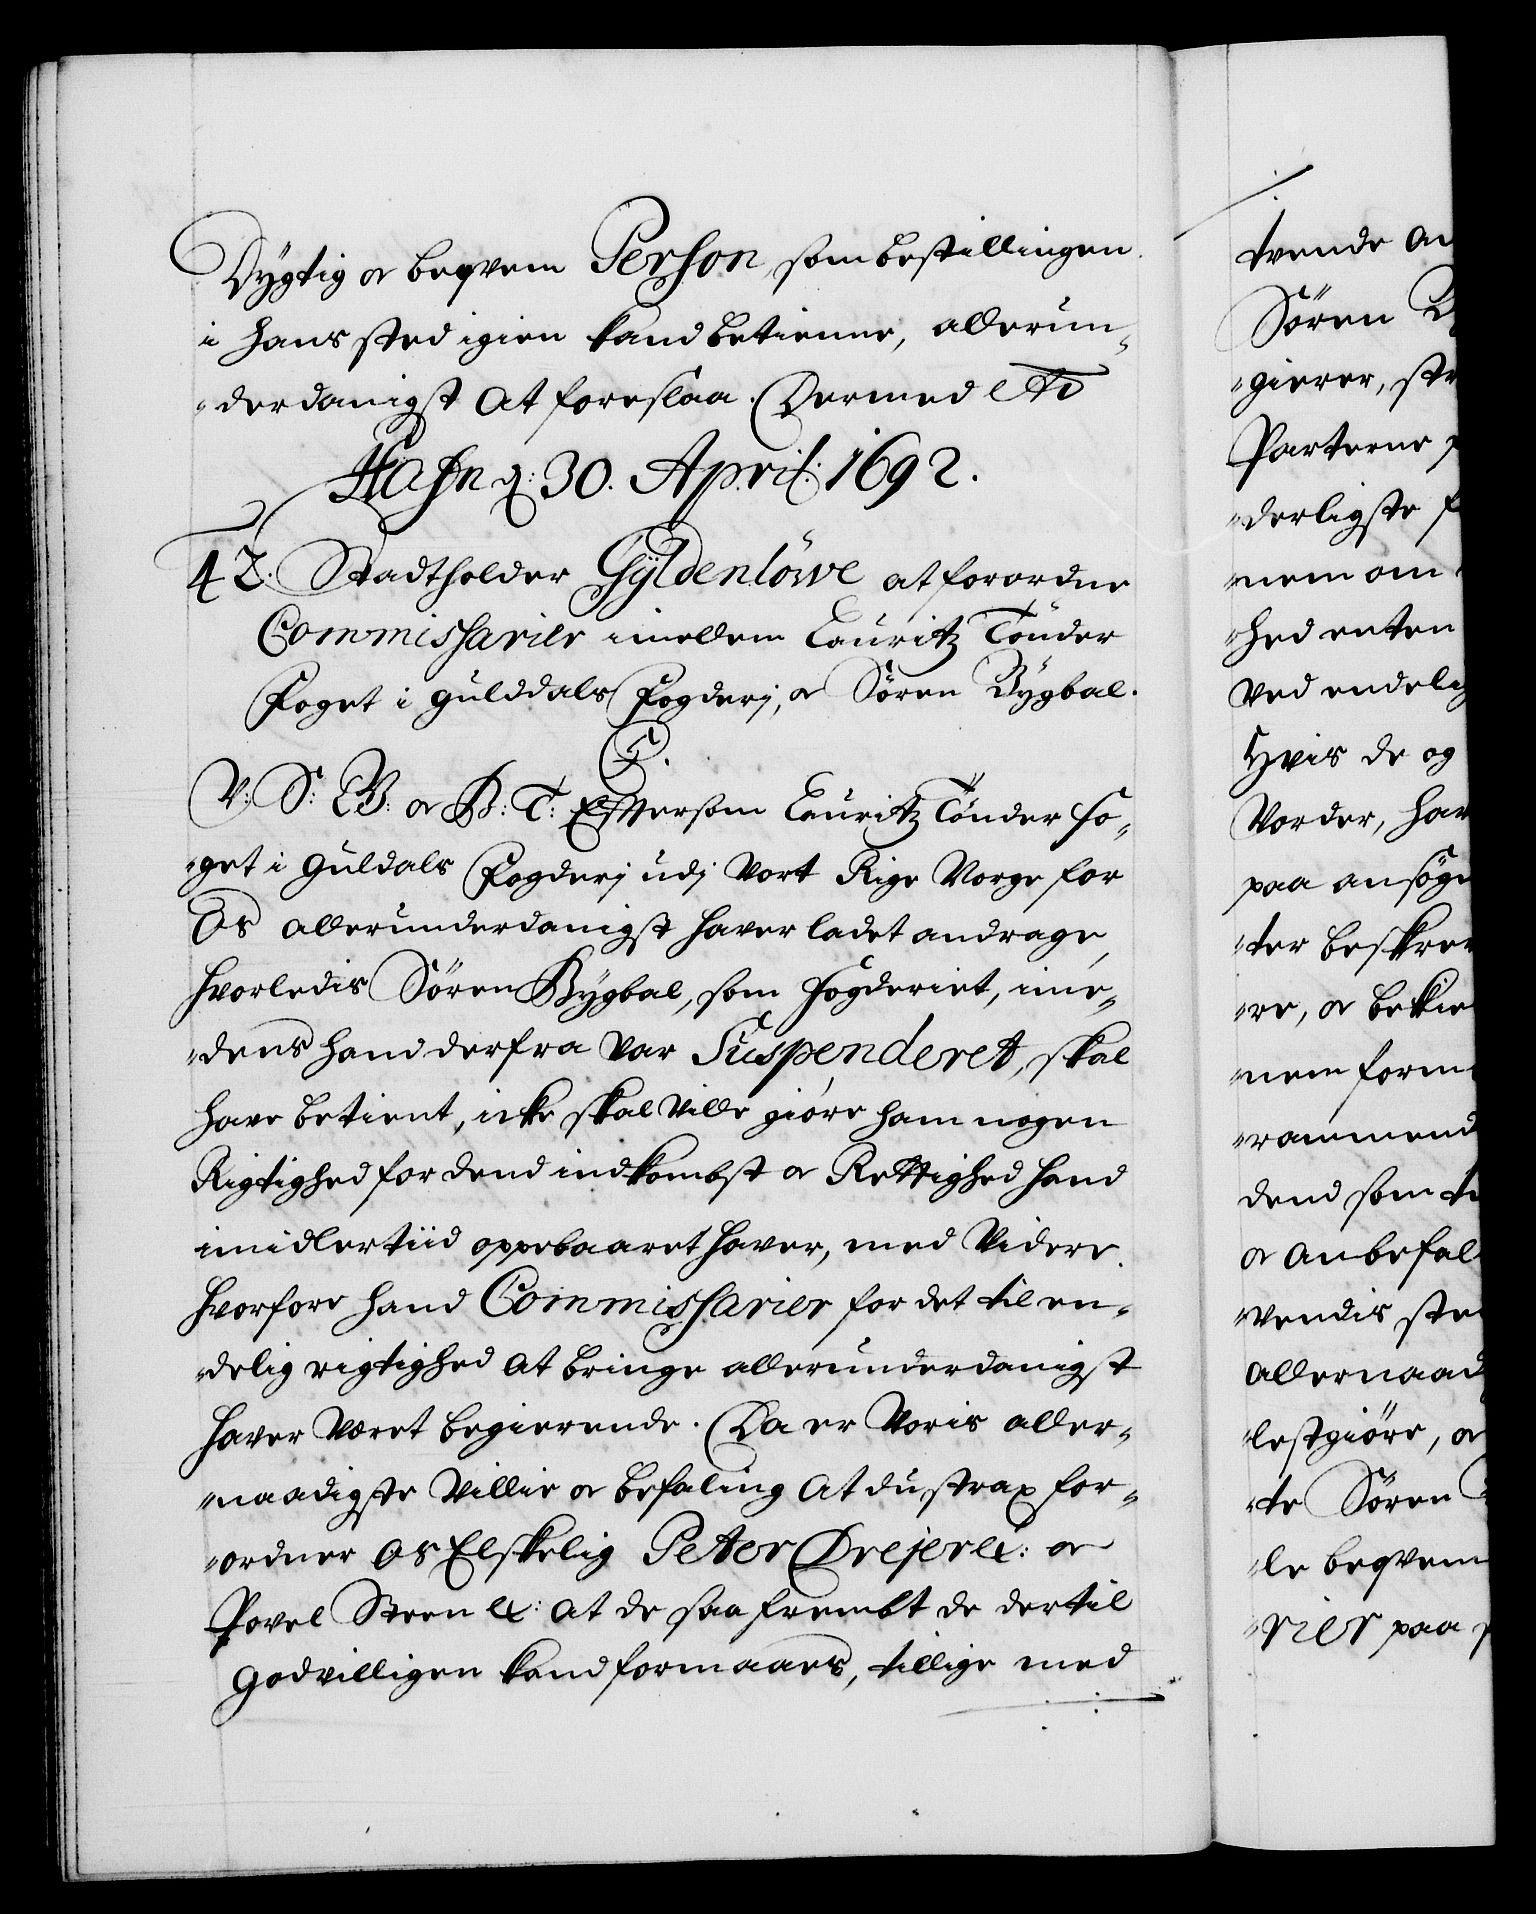 Dygtig oc beqvem Person, som bestillingen
i hans sted igien kand betienne, allerun-
-derdanigst at foreslaa. Dermed etc
Hafn d: 30. April: 1692.
42. Stadtholder Gyldenløwe at forordne
Commissarier imellem Lauritz Tønder
Foget i Gulddals Fogderj, oc Søren Bygbal.
C5.
V: S: W: oc B: T: Eftersom Lauritz Tønder Fo-
-get i Guldals Fogderj udj Vort Rige Norge for
Os allerunderdanigst haver ladet andrage,
hvorledis Søren Bygbal, som Fogderiet, ime-
-dens hand derfra var Suspenderet, skal
have betient, icke skal ville giøre ham nogen
Rigtighed for dend indkombst oc Rettighed hand
imidlertiid oppebaaret haver, med Videre.
hvorfore hand Commissarier for det til en-
-delig rigtighed at bringe allerunderdanigst
haver Været begierende. Da er Voris aller-
-naadigste Villie oc befaling at du strax for-
-ordner Os Elskelig Peter Drejer etc: oc
Povel Steen etc: at de saa frembt de dertil
godvilligen kand formaaes, tillige med
tvende an
Søren B
-gierer, str
Parterne
-derligste f
-nem om
-hed enten
ved endelig
Hvis de og
Vorder, har
paa ansøge
-ter beskrev
-re, oc beskie
-nem form
-rammend
dend som ti
oc anbefal
-vendis ste
allernaad
-lestgiøre, oc
-te Søren
-le beqvem
-rier paa